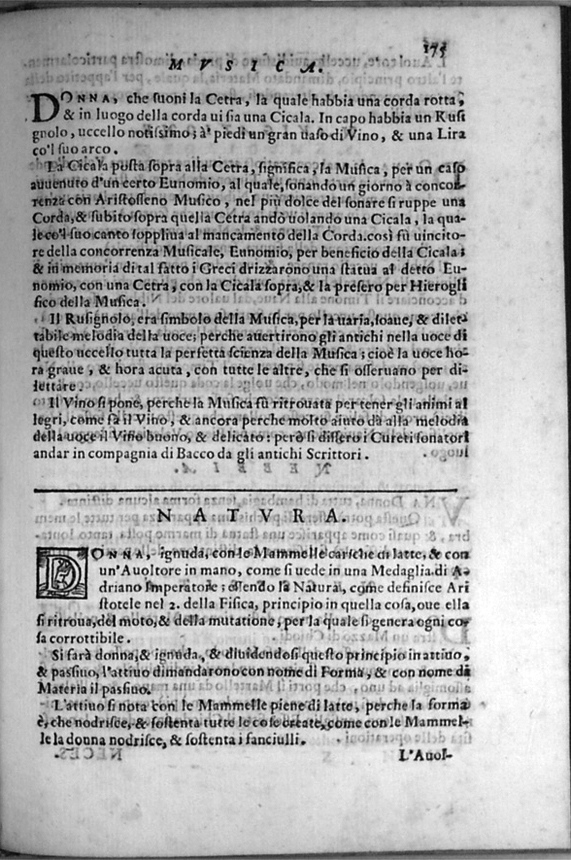 175
MVSICA.
DONNA, che suoni la Cetra, la quale habbia una corda rotta,
& in luogo della corda ui sia una Cicala. In capo habbia un Rusi
gnolo, uccello notissimo; à piedi un gran uaso di Vino, & una Lira
co'l suo arco.
La Cicala posta sopra alla Cetra, significa, la Musica, per un caso
auuenuto d'un certo Eunomio, al quale, sonando un giorno à concor-
renza con Aristosseno Musico, nel più dolce del sonare si ruppe una
Corda, & subito sopra quella Cetra andò uolando una Cicala, la qua-
le co'l suo canto suppliua al mancamento della Corda. così fù uincito-
re della concorrenza Musicale, Eunomio, per beneficio della Cicala;
& in memoria di tal fatto i Greci drizzarono una statua al detto Eu-
nomio, con una Cetra, con la Cicala sopra, & la presero per Hierogli
fico della Musica.
Il Rusignolo, era simbolo della Musica, per la uaria, soaue, & dilet
tabile melodia della uoce; perche auertirono gli antichi nella uoce di
questo uccello tutta la perfetta scienza della Musica; cioè la uoce ho-
ra graue, & hora acuta, con tutte le altre, che si osseruano per di-
lettare.
Il Vino si pone, perche la Musica fù ritrouata per tener gli animi al
legri, come fà il Vino, & ancora perche molto aiuto dà alla melodia
della uoce il Vino buono, & delicato: però si dissero i Cureti sonatori
andar in compagnia di Bacco da gli antichi Scrittori.
NATVRA.
DONNA, ignuda, con le Mammelle cariche di latte, & con
un'Auoltore in mano, come si uede in una Medaglia di A-
driano Imperatore; essendo la Natura, come definisce Ari
stotele nel 2. della Fisica, principio in quella cosa, oue ella
si ritroua, del moto, & della mutatione, per la quale si genera ogni co-
sa corrottibile.
Si farà donna, & ignuda, & diuidendosi questo principio in attiuo,
& passiuo, l'attiuo dimandarono con nome di Forma, & con nome di
Materia il passiuo.
L'attiuo si nota con le Mammelle piene di latte, perche la forma
è, che nodrisce, & sostenta tutte le cose create, come con le Mammel-
le la donna nodrisce, & sostenta i fanciulli.
L'Auol-